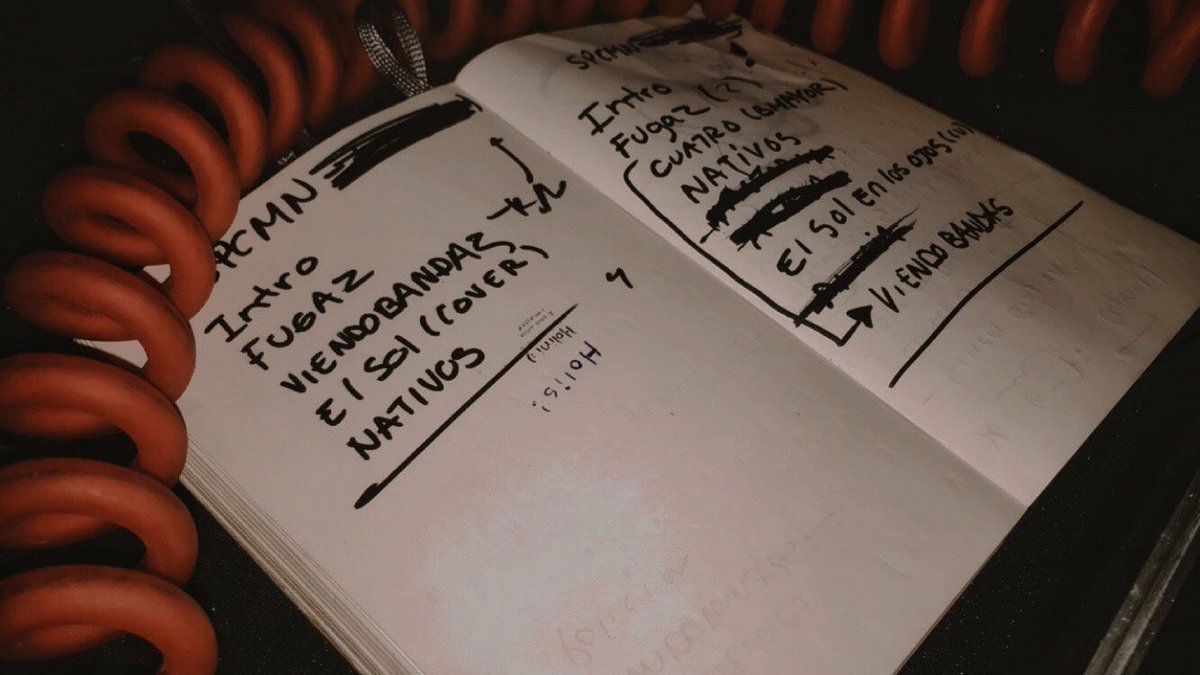 SPCMN
Intro
FUGAZ
VIENDO BANDAS
El Sol (COVER)
NATIVOS
Holi's!
SPCMN
Intro
FUGAZ (2)
CUATRO (BMAYOR)
NATIVOS
El Sol En los ojos (
VIENDO BANDAS